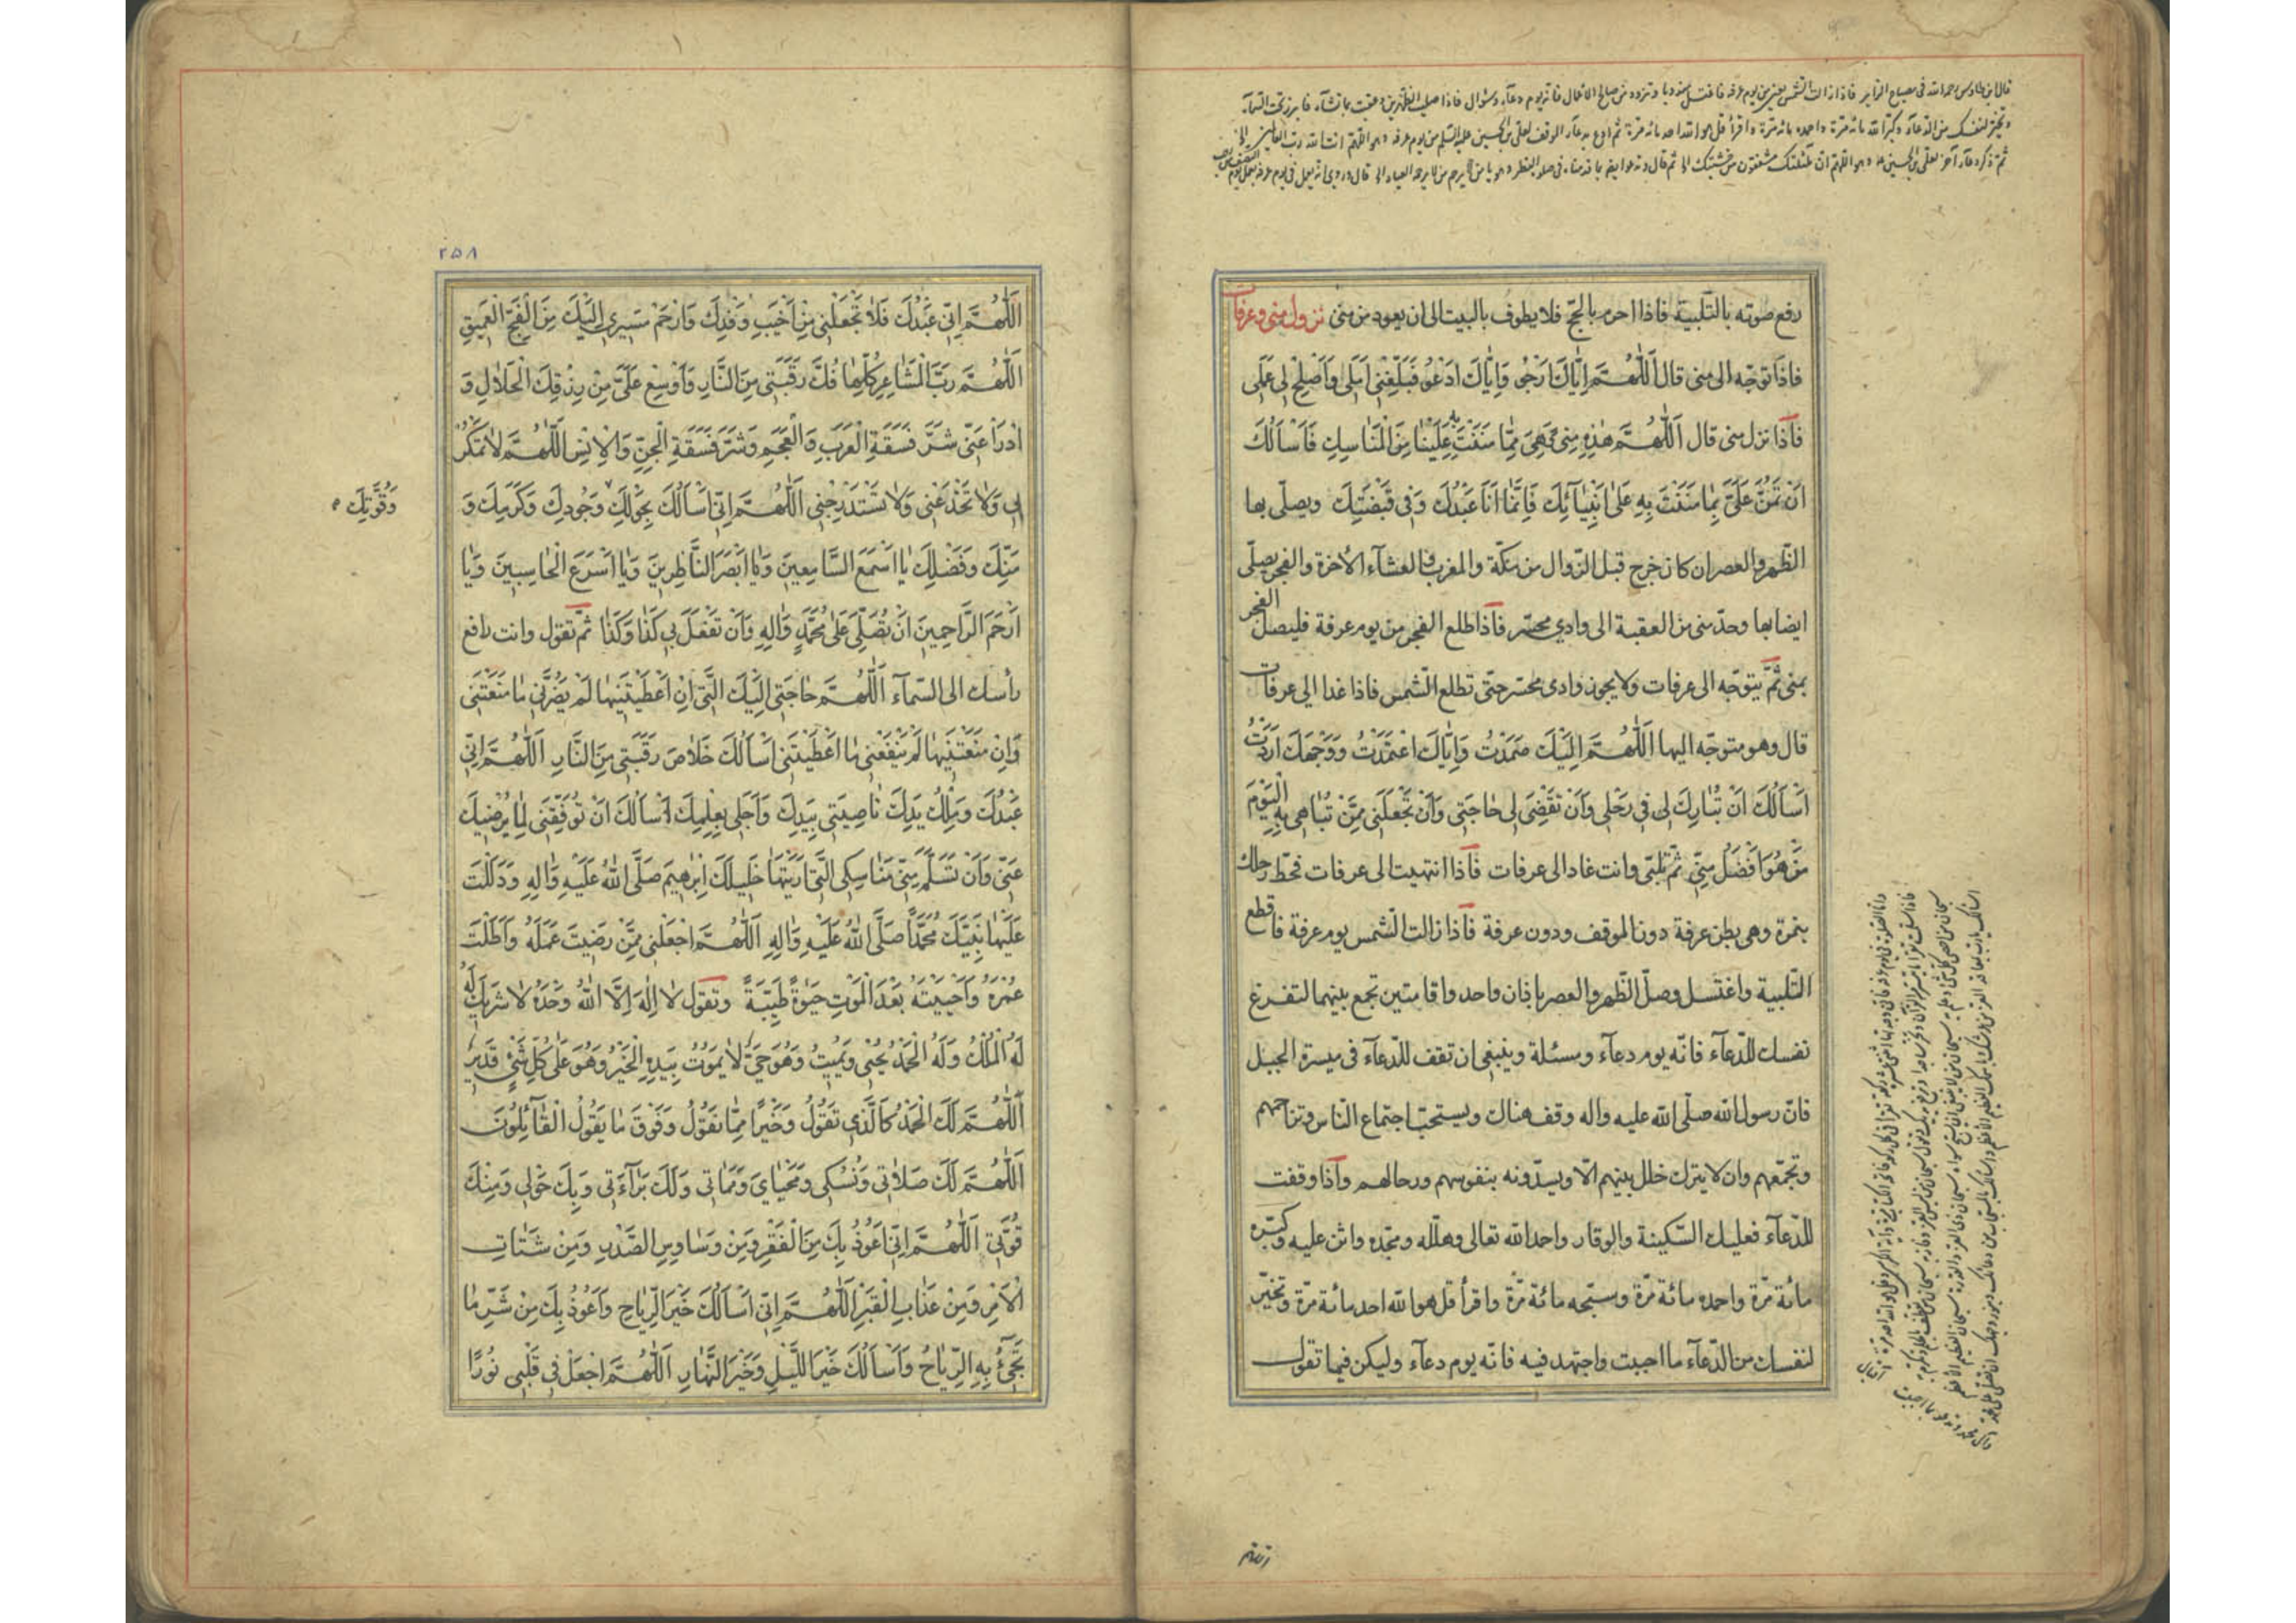 قال ابن طاوس رحمه الله في مصباح الزاير فاذا زالت الشمس يوم عرفة فاغتسل فانه يوم دعآء وسئوال فاذا صليت الظهرين فابرز تحت السمآء
وتخير لنفسك من الدعآء وكبر الله مائة مرة واحمده مائة مرة واقرأ قل هو الله احد مائة مرة ثم ادع بدعآء الموقف لعلى بن الحسين عليه السلم يوم عرفه وهو اللهم انت الله رب العالمين
رفع صوته بالتّلبية فاذا احرم بالحجّ فلا يطوف بالبيت الى ان يعود من منىٰ نزول منى وعرفات
فاذا توجّه الى منى قال اَللّٰهُمَّ اِيّٰاكَ اَرْجُو وَاِيّٰاكَ اَدْعُو فَبَلِّغْنى اَمَلى وَاَصْلِحْ لى عَمَلى
فاذا نزل منى قال اَللّٰهُمَّ هٰذِهِ مِنى وَهِىَ مِمّٰا مَنَنْتَ بِهِ عَلَيْنٰا مِنَ الْمَنٰاسِكِ فَاَسْاَلُكَ
اَنْ تَمُنَّ عَلَىَّ بِمٰا مَنَنْتَ بِهِ عَلىٰ اَنْبِيٰآئِكَ فَاِنَّمٰا اَنَا عَبْدُكَ وَفى قَبْضَتِكَ ويصلّى بها
الظّهر والعصر ان كان خرج قبل الزّوال من مكّة والمغرب والعشآء الاخرة والفجر يصلّى
ايضا بها وحدّ منى من العقبة الى وادي محسّر فاذا طلع الفجر من يوم عرفة فليصلّ الفجر
بمنى ثمّ يتوجّه الى عرفات ولا يجوز وادى محسّر حتّى تطلع الشّمس فاذا غدا الى عرفات
قال وهو متوجّه اليها اَللّٰهُمَّ اِلَيْكَ صَمَدْتُ وَاِيّٰاكَ اعْتَمَدْتُ وَوَجْهَكَ اَرَدْتُ
اَسْاَلُكَ اَنْ تُبٰارِكَ لى فى رَحْلى وَاَنْ تَقْضِىَ لى حٰاجَتى وَاَنْ تَجْعَلَنى مِمَّنْ تُبٰاهى بِهِ الْيَوْمَ
مَنْ هُوَ اَفْضَلُ مِنّى ثمّ تلبّى وانت غاد الى عرفات فاذا انتهيت الى عرفات فحطّ رحلك
بنمرة وهى بطن عرفة دون الموقف ودون عرفة فاذا زالت الشّمس يوم عرفة فاقطع
التّلبية واغتسل وصلّ الظّهر والعصر باذان واحد واقامتين تجمع بينهما لتفرغ
نفسك للدّعآء فانّه يوم دعآء ومسئلة وينبغى ان تقف للدّعآء فى ميسرة الجبل
فانّ رسول الله صلّى الله عليه واله وقف هناك ويستحبّ اجتماع النّاس وتزاحمهم
وتجمّعهم وان لا يترك خلل بينهم الّا ويسدّونه بنفوسهم ورحالهم واذا وقفت
للدّعآء فعليك السّكينة والوقار واحد الله تعالى وهلّله ومجّده واثن عليه وكبّره
مائة مرّة واحمده مائة مرّة وسبّحه مائة مرّة واقرأ قل هو الله احد مائة مرّة وتخيّر
لنفسك من الدّعآء ما احببت واجتهد فيه فانّه يوم دعآء وليكن فيما تقول
اللهم
٢٥٨
اَللّٰهُمَّ اِنّى عَبْدُكَ فَلٰا تَجْعَلْنى مِنْ اَخْيَبِ وَفْدِكَ وَارْحَمْ مَسيرى اِلَيْكَ مِنَ الْفَجِّ الْعَميقِ
اَللّٰهُمَّ رَبَّ الْمَشٰاعِرِ كُلِّهٰا فُكَّ رَقَبَتى مِنَ النّٰارِ وَاَوْسِعْ عَلَىَّ مِنْ رِزْقِكَ الْحَلٰالِ وَ
ادْرَاْ عَنّى شَرَّ فَسَقَةِ الْعَرَبِ وَالْعَجَمِ وَشَرَّ فَسَقَةِ الْجِنِّ وَالْاِنْسِ اَللّٰهُمَّ لٰا تَمْكُرْ
بى وَلٰا تَخْدَعْنى وَلٰا تَسْتَدْرِجْنى اَللّٰهُمَّ اِنّى اَسْاَلُكَ بِحَوْلِكَ وَجُودِكَ وَكَرَمِكَ وَ
وَقُوَّتِكَ
مَنِّكَ وَفَضْلِكَ يٰا اَسْمَعَ السّٰامِعينَ وَيٰا اَبْصَرَ النّٰاظِرينَ وَيٰا اَسْرَعَ الْحٰاسِبينَ وَيٰا
اَرْحَمَ الرّٰاحِمينَ اَنْ تُصَلِّىَ عَلىٰ مُحَمَّدٍ وَاٰلِهِ وَاَنْ تَفْعَلَ بى كَذٰا وَكَذٰا ثمّ تقول وانت رافع
رأسك الى السّمآء اَللّٰهُمَّ حٰاجَتى اِلَيْكَ الَّتى اِنْ اَعْطَيْتَنيهٰا لَمْ يَضُرَّنى مٰا مَنَعْتَنى
وَاِنْ مَنَعْتَنيهٰا لَمْ يَنْفَعْنى مٰا اَعْطَيْتَنى اَسْاَلُكَ خَلٰاصَ رَقَبَتى مِنَ النّٰارِ اَللّٰهُمَّ اِنّى
عَبْدُكَ وَمِلْكُ يَدِكَ نٰاصِيَتى بِيَدِكَ وَاَجَلى بِعِلْمِكَ اَسْاَلُكَ اَنْ تُوَفِّقَنى لِمٰا يُرْضيكَ
عَنّى وَاَنْ تَسَلَّمَ مِنّى مَنٰاسِكِى الَّتى اَرَيْتَهٰا خَليلَكَ اِبْرٰهيمَ صَلَّى اللهُ عَلَيْهِ وَاٰلِهِ وَدَلَلْتَ
عَلَيْهٰا نَبِيَّكَ مُحَمَّدًا صَلَّى اللهُ عَلَيْهِ وَاٰلِهِ اَللّٰهُمَّ اجْعَلْنى مِمَّنْ رَضيتَ عَمَلَهُ وَاَطَلْتَ
عُمْرَهُ وَاَحْيَيْتَهُ بَعْدَ الْمَوْتِ حَيٰوةً طَيِّبَةً وتقول لٰا اِلٰهَ اِلَّا اللهُ وَحْدَهُ لٰا شَريكَ لَهُ
لَهُ الْمُلْكُ وَلَهُ الْحَمْدُ يُحْيى وَيُميتُ وَهُوَ حَىٌّ لٰا يَمُوتُ بِيَدِهِ الْخَيْرُ وَهُوَ عَلىٰ كُلِّ شَىْءٍ قَديرٌ
اَللّٰهُمَّ لَكَ الْحَمْدُ كَالَّذى تَقُولُ وَخَيْرًا مِمّٰا نَقُولُ وَفَوْقَ مٰا يَقُولُ الْقٰآئِلُونَ
اَللّٰهُمَّ لَكَ صَلٰاتى وَنُسُكى وَمَحْيٰاىَ وَمَمٰاتى وَلَكَ بَرٰآءَتى وَبِكَ حَوْلى وَمِنْكَ
قُوَّتى اَللّٰهُمَّ اِنّى اَعُوذُ بِكَ مِنَ الْفَقْرِ وَمِنْ وَسٰاوِسِ الصَّدْرِ وَمِنْ شَتٰاتِ
الْاَمْرِ وَمِنْ عَذٰابِ الْقَبْرِ اَللّٰهُمَّ اِنّى اَسْاَلُكَ خَيْرَ الرِّيٰاحِ وَاَعُوذُ بِكَ مِنْ شَرِّ مٰا
تَجىٓءُ بِهِ الرِّيٰاحُ وَاَسْاَلُكَ خَيْرَ اللَّيْلِ وَخَيْرَ النَّهٰارِ اَللّٰهُمَّ اجْعَلْ فى قَلْبى نُورًا